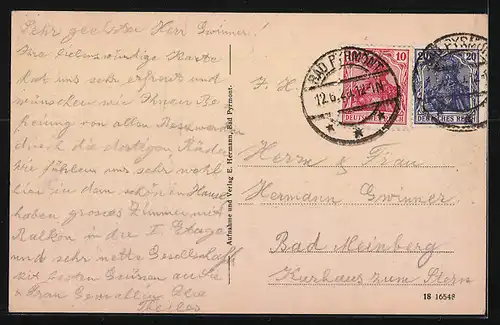 Sehr geehrter Herr Gwinner!
Ihre liebenswürdige Karte
hat uns sehr erfreut und
wünschen wir Ihnen Be
freiung von allen Beschwerden
durch die dortigen Bäder
Wir fühlen uns sehr wohl
hier in dem schönen Hause
haben grosses Zimmer mit
Balkon in der I Etage
und sehr nette Gesellschaft
mit besten Grüssen an Sie
u Frau Gemahlin Ihre
Aufnahme und Verlag E. Hermann, Bad Pyrmont.
BAD PYRMONT
12.6.
10
DEUTSCHES
20
PYRMONT
DEUTSCHES REICH
Herrn & Frau
Hermann Gwinner
Bad Meinberg
Kurhaus zum Stern
18 16548